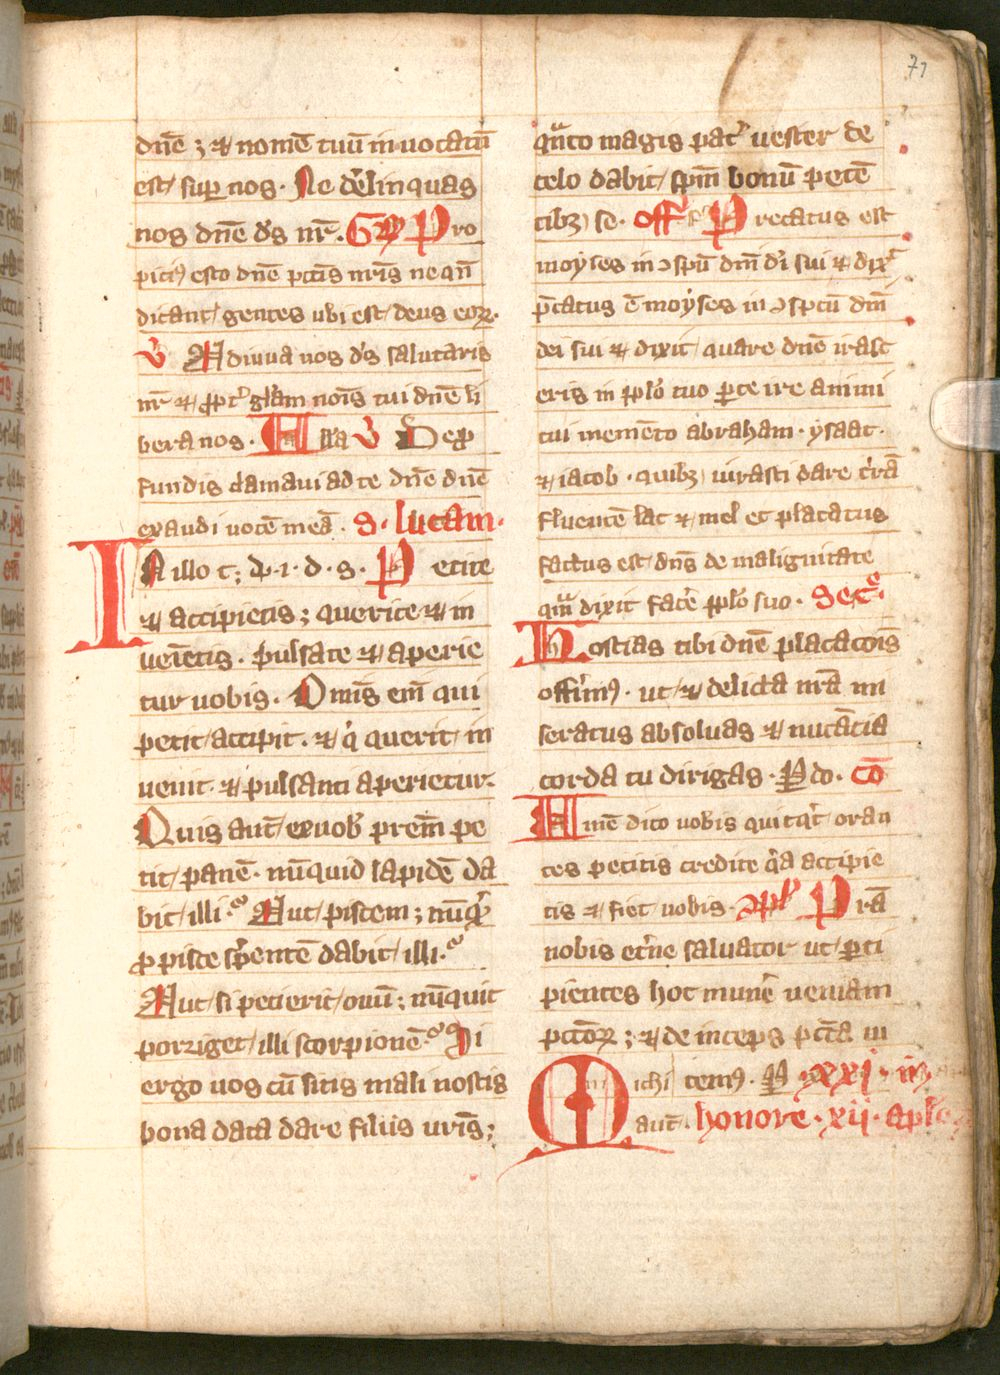 71
dnē ; ⁊ nomē tuū inuocatū
est sup nos. Ne delinquas
nos dnē ds nr̄. Gr̄ Pro
pitiꝰ esto dnē pctīs nr̄is ne qn̄
dicant gentes ubi est deus eoꝝ.
v̄ Adiuua nos ds salutaris
nr̄ ⁊ ꝓpt̄ gl̄am nois tui dnē li
bera nos. Alla v̄ De ꝓ
fundis clamaui ad te dnē dnē
exaudi uocē meā. S. lucam.
IN illo t; d. i. d. s. Petite
⁊ accipietis; querite ⁊ in
uenietis. pulsate ⁊ aperie
tur uobis. Omīs em̄ qui
petit accipit. ⁊ q̄ querit in
uenit. ⁊ pulsanti aperietur.
Quis aut̄ ex uob prem̄ pe
tit panē. nūquid lapidē da
bit illi. Aut piscem; nūqͥ
ꝓ pisce sp̄entē dabit illi.
Aut si petierit ouū; nūquit
porriget illi scorpionē. Si
ergo uos cū sitis mali nostis
bona data dare filiis ur̄is;
qͣnto magis pat̄ uester de
celo dabit spm̄ bonū petē
tibꝫ se. off̄ Precatus est
moyses in ɔspū dn̄i di sui ⁊ dix̄
p̄catus ē moyses in ɔspctū dn̄i
dei sui ⁊ dixit quare dnē irasc
eris in pplo tuo parce ire animi
tui memēto abraham. ysaac.
⁊ iacob. quibꝫ iurasti dare t̄rā
fluentē lac ⁊ mel et placatus
factus est dn̄s de malignitate
qͣm dixit facē pplo suo. Secͬ.
Hostias tibi dnē placacōis
offerimꝰ. ut ⁊ delicta nr̄a mi
seratus absoluas ⁊ nutācia
corda tu dirigas. P do. Cō
Amē dico uobis quitqͥt oran
tes petitis credite qͥa accipie
tis ⁊ fiet uobis. ꝯpl̄ Prā
nobis etn̄e saluator ut ꝑti
pientes hoc munē ueniam
pctōꝝ; ⁊ deinceps pctā ui
Michi temꝰ. P xxj. in
aut. honore. xij. aplo